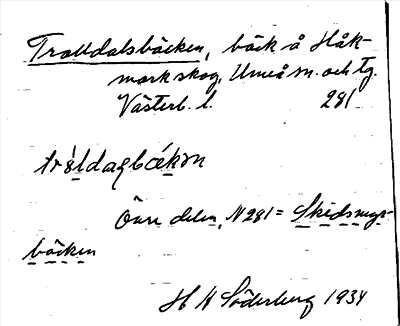 Tralldalsbäcken, bäck å Håk-
mark skog, Umeå sn. och tg.
Västerb. l. 281
Övre delen, N 281 = Skidsmyr-
bäcken
H H Söderberg 1934